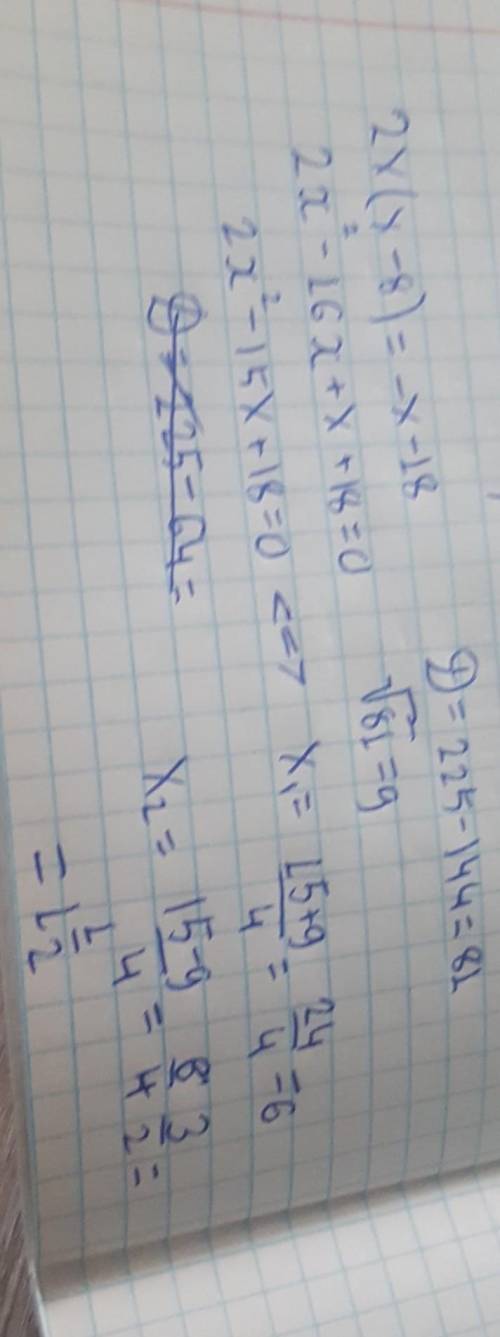 2x(x-8)=-x-18
2x²-16x+x+18=0
2x²-15x+18=0 <=>
D=225-64=
D=225-144=81
√81=9
x₁= 15+9/4 = 24/4 =6
x₂= 15-9/4 = 6/4 3/2 =
= 1 1/2